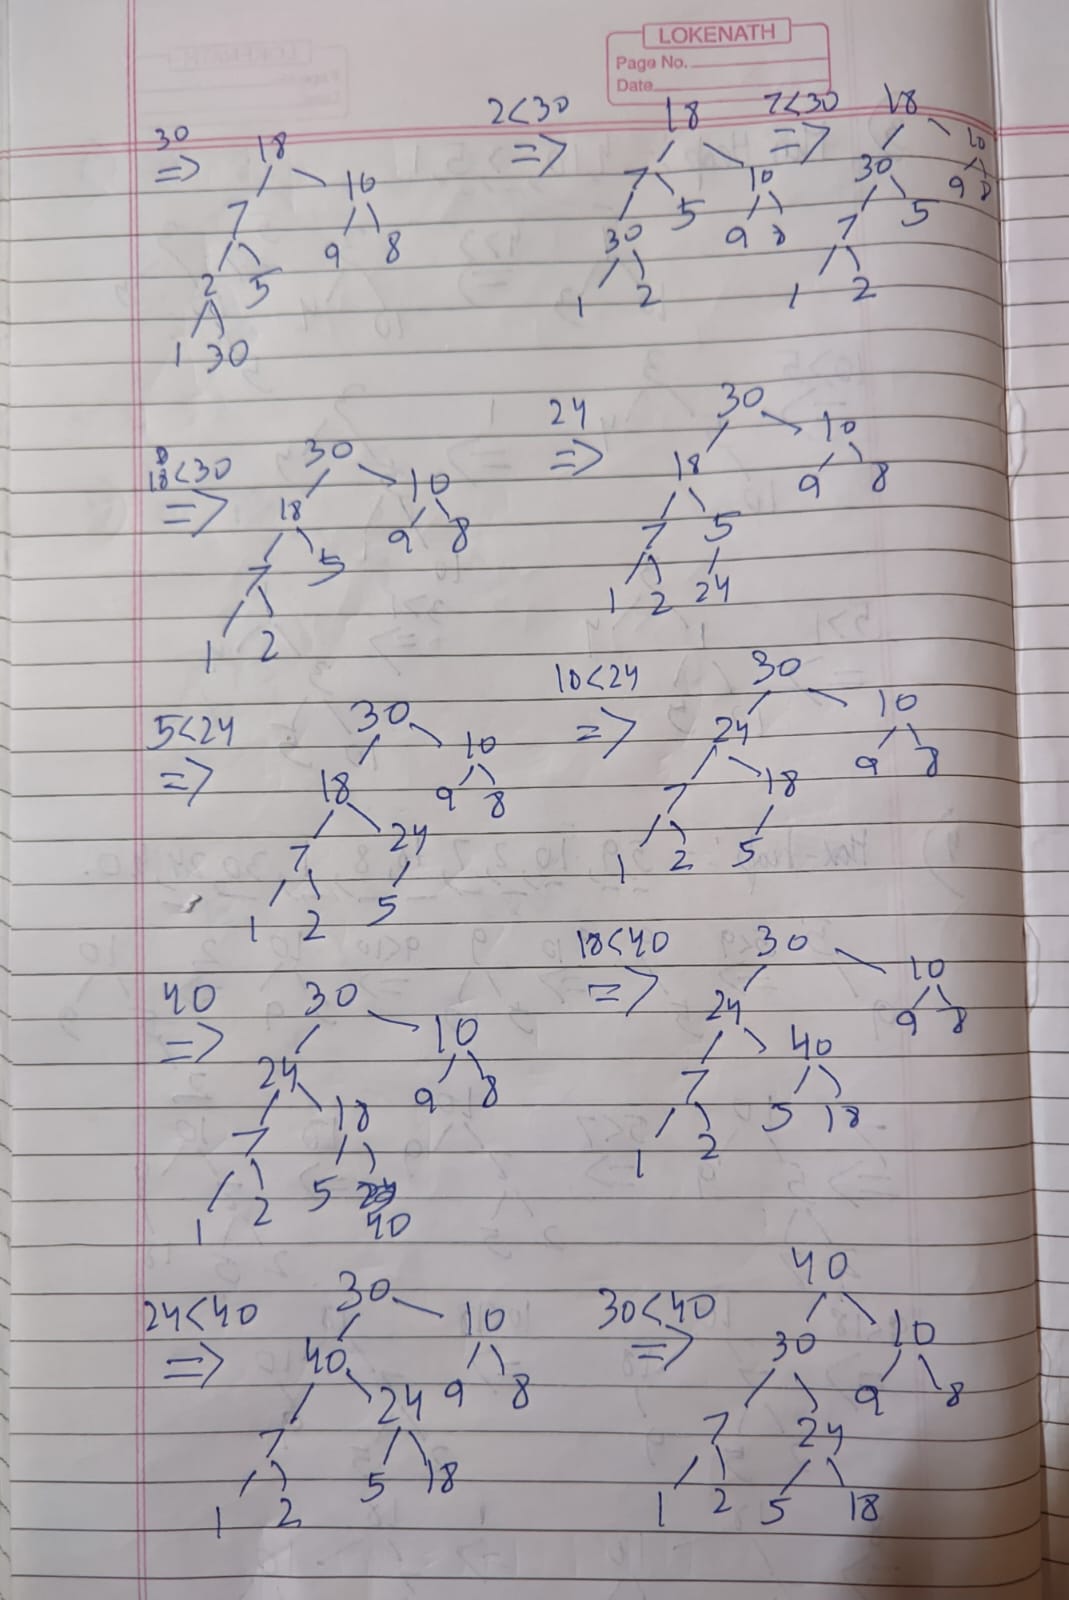 LOKENATH
Page No.
Date
30 => 18
7 10
2 5 9 8
1 30
2<30 => 18
7 10
30 5 9 8
1 2
7<30 => 18
30 10
7 5 9 8
1 2
18<30 => 30
18 10
7 5 9 8
1 2
24 => 30
18 10
7 5 9 8
1 2 24
5<24 => 30
18 10
7 24 9 8
1 2 5
10<24 => 30
24 10
7 18 9 8
1 2 5
40 => 30
24 10
7 18 9 8
1 2 5 40
18<40 => 30
24 10
7 40 9 8
1 2 5 18
24<40 => 30
40 10
7 24 9 8
1 2 5 18
30<40 => 40
30 10
7 24 9 8
1 2 5 18